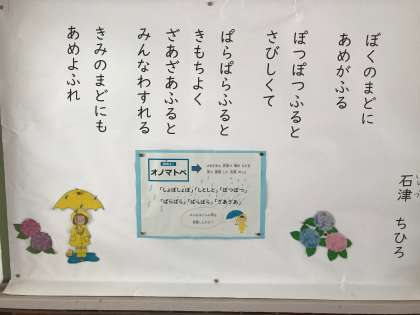 ぼくのまどに
あめがふる
ぽつぽつふると
さびしくて
ぱらぱらふると
きもちよく
ざあざあふると
みんなわすれる
きみのまどにも
あめよふれ
石津 ちひろ
オノマトペ
「しょぼしょぼ」「しとしと」「ぽつぽつ」
「ぱらぱら」「ばらばら」「ざあざあ」